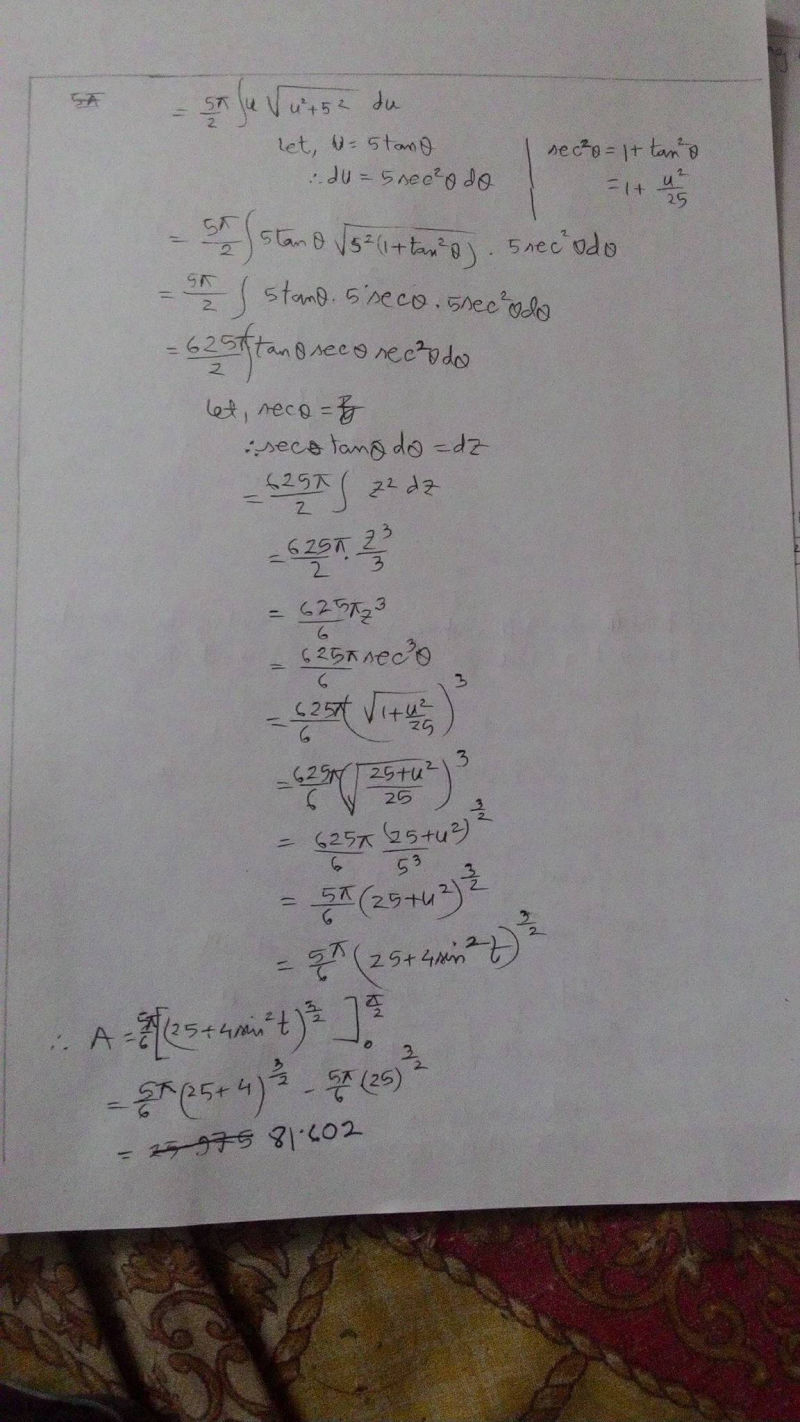 = 5π/2 ∫u √(u²+5²) du
let, u = 5tanθ
∴ du = 5sec²θ dθ
sec²θ = 1 + tan²θ
= 1 + u²/25
= 5π/2 ∫5tanθ √(5²(1+tan²θ)) . 5sec²θdθ
= 5π/2 ∫ 5tanθ . 5secθ . 5sec²θdθ
= 625π/2 ∫tanθ secθ sec²θdθ
let, secθ = z
∴ secθ tanθ dθ = dz
= 625π/2 ∫ z² dz
= 625π/2 . z³/3
= 625π/6 z³
= 625π/6 sec³θ
= 625π/6 (√(1+u²/25))³
= 625π/6 (√((25+u²)/25))³
= 625π/6 (25+u²)^(3/2)/5³
= 5π/6 (25+u²)^(3/2)
= 5π/6 (25+4sin²t)^(3/2)
∴ A = 5π/6 [(25+4sin²t)^(3/2)]₀^(π/2)
= 5π/6 (25+4)^(3/2) - 5π/6 (25)^(3/2)
= 81.602